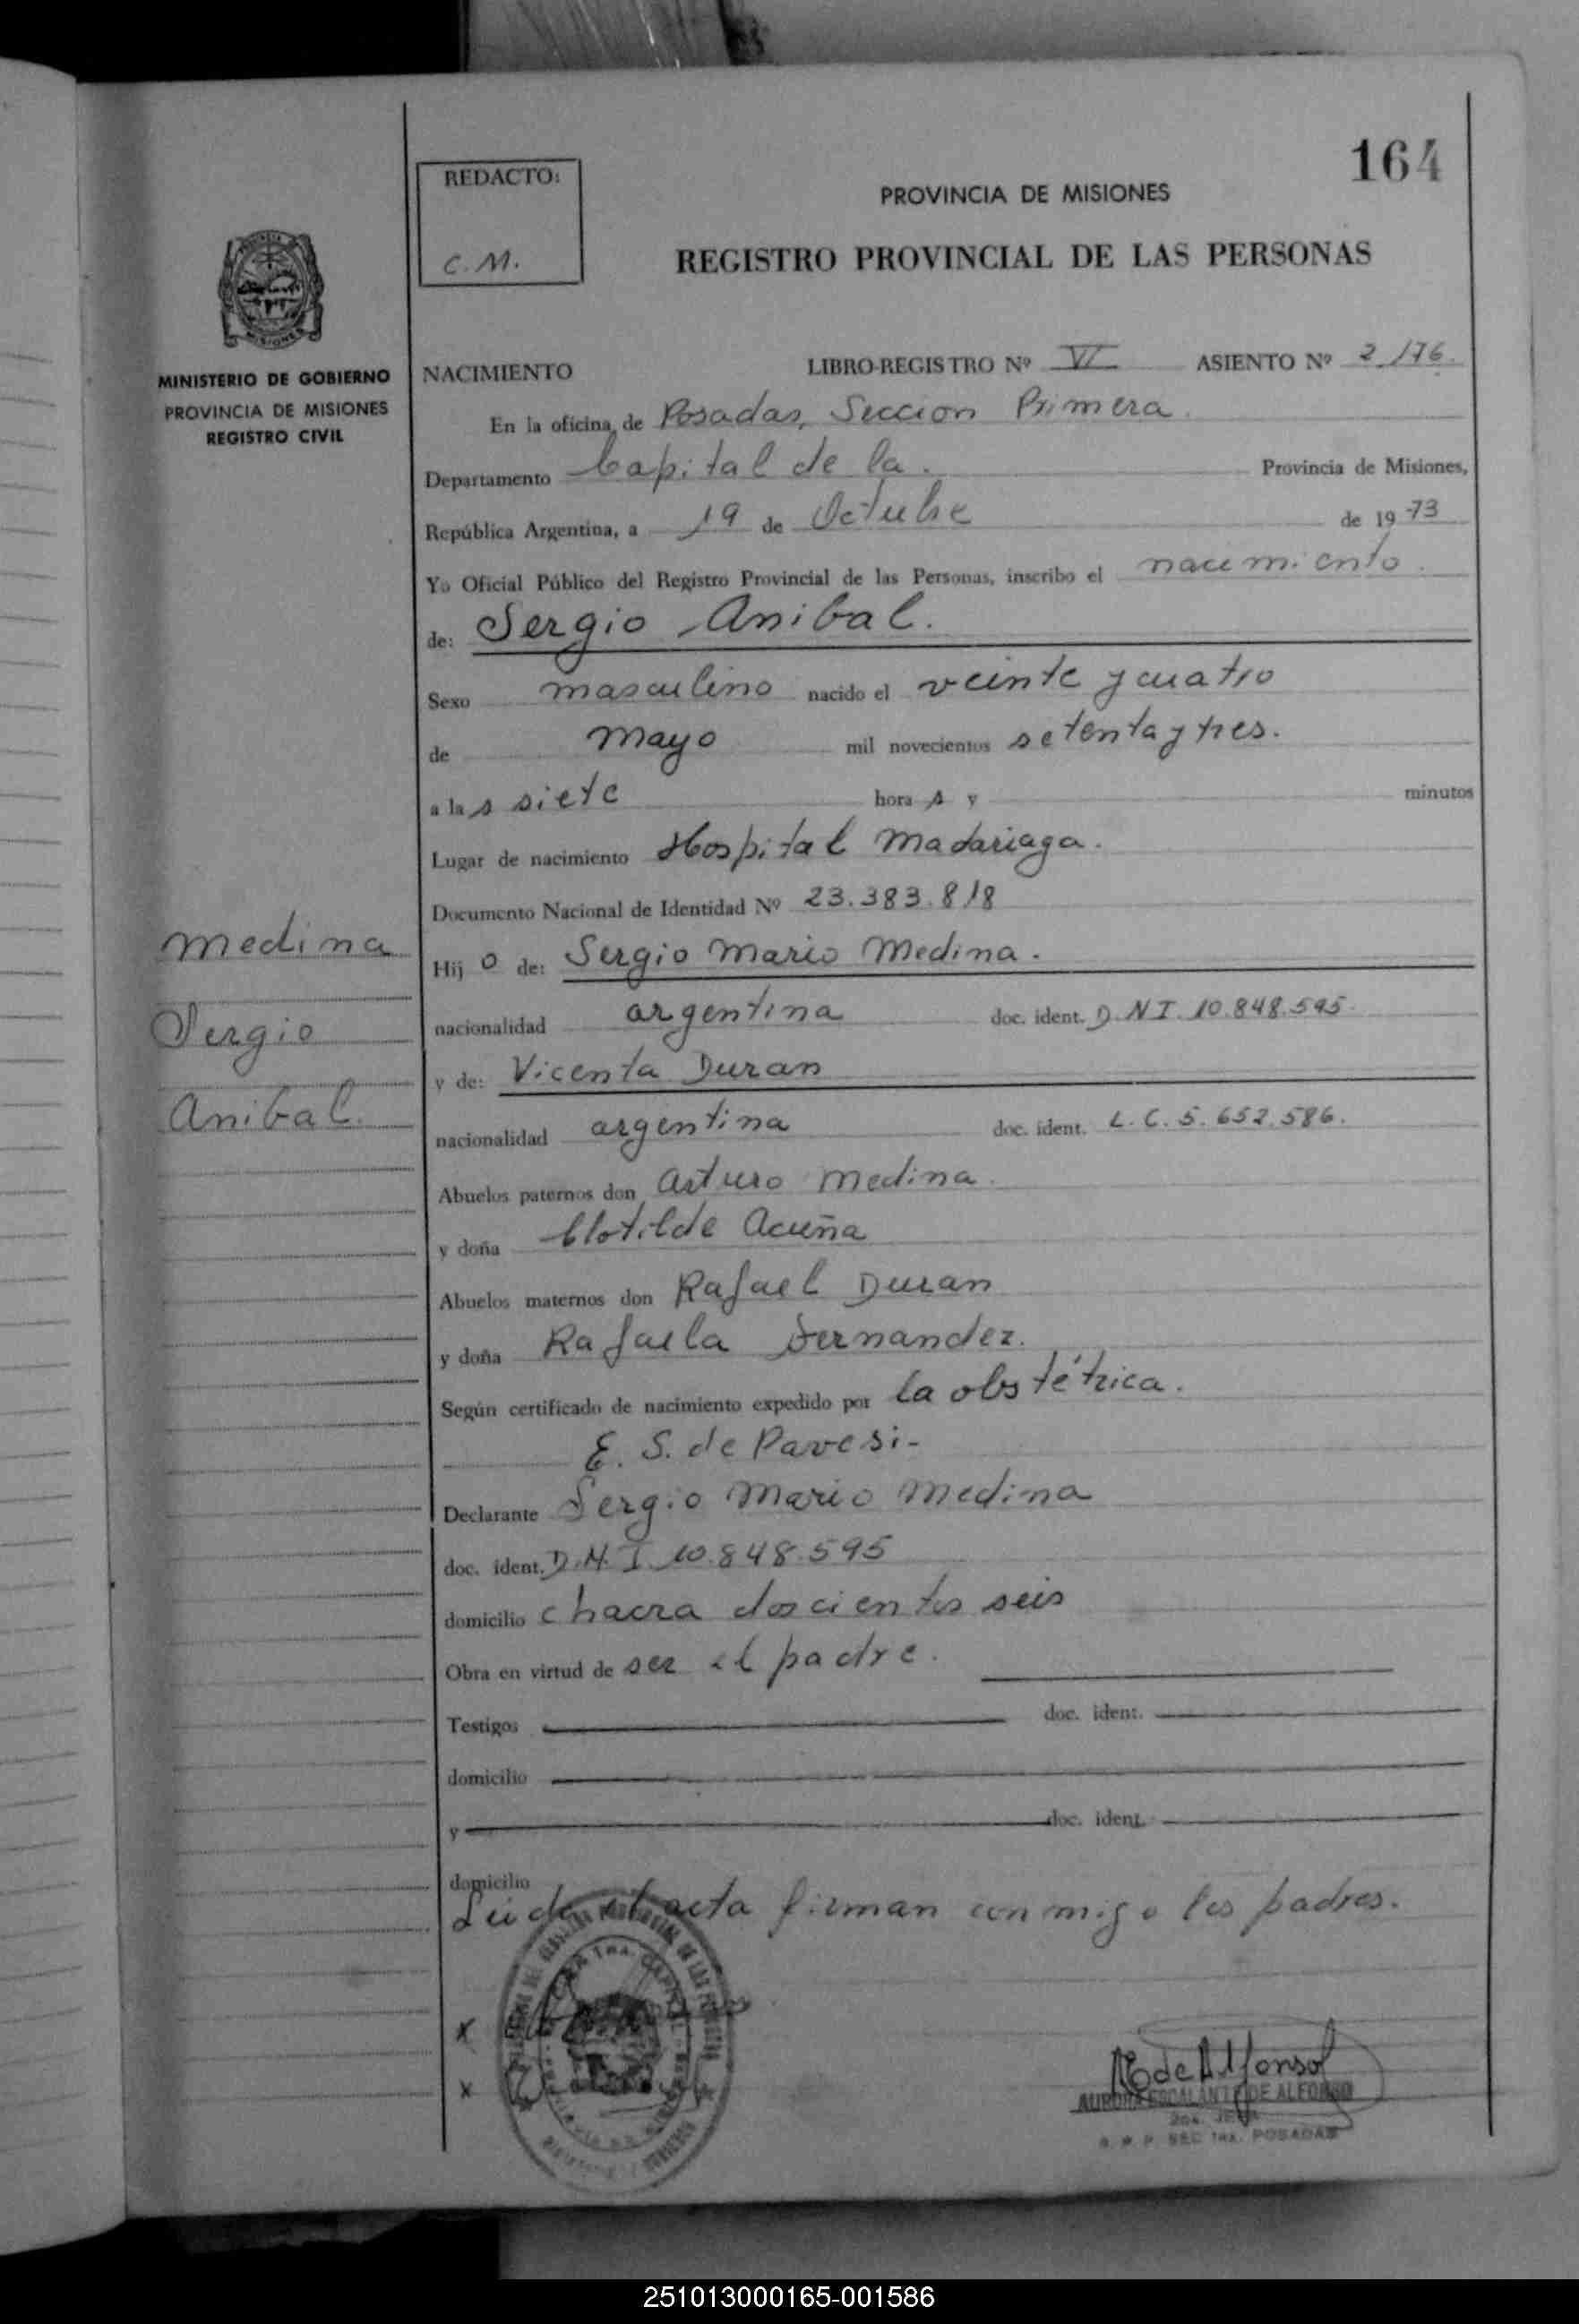 164
REDACTO:
C. M.
PROVINCIA DE MISIONES
REGISTRO PROVINCIAL DE LAS PERSONAS
MISIONES
MINISTERIO DE GOBIERNO
PROVINCIA DE MISIONES
REGISTRO CIVIL
NACIMIENTO LIBRO-REGISTRO Nº VI ASIENTO Nº 2176.
En la oficina de Posadas, Seccion Primera.
Departamento Capital de la. Provincia de Misiones,
República Argentina, a 19 de Octubre de 1973
Yo Oficial Público del Registro Provincial de las Personas, inscribo el nacimiento.
de: Sergio Anibal.
Sexo masculino nacido el veinte y cuatro
de mayo mil novecientos setenta y tres.
a las siete hora s y minutos
Lugar de nacimiento Hospital Madariaga.
Documento Nacional de Identidad Nº 23.383.818
Medina
Sergio
Anibal.
Hij o de: Sergio Mario Medina.
nacionalidad argentina doc. ident. D.N.I. 10.848.595.
y de: Vicenta Duran
nacionalidad argentina doc. ident. L.C. 5.652.586.
Abuelos paternos don Arturo Medina.
y doña Clotilde Acuña
Abuelos maternos don Rafael Duran
y doña Rafaela Fernandez.
Según certificado de nacimiento expedido por la obstétrica.
E. S. de Pavesi-
Declarante Sergio Mario Medina
doc. ident. D.N.I. 10.848.595
domicilio chacra doscientos seis
Obra en virtud de ser el padre.
Testigos doc. ident.
domicilio
y doc. ident.
domicilio
Leida el acta firman conmigo los padres.
x
x
de Alfonso
AURORA ESCALANTE DE ALFONSO
2da. JEFA
R. P. P. SEC 1RA. POSADAS
251013000165-001586